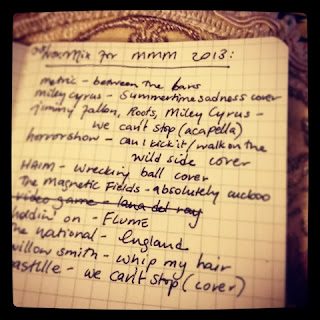 Mix for MMM 2013:
metric - between the bars
miley cyrus - Summertime sadness cover
jimmy fallon, Roots, Miley Cyrus -
we can't stop (acapella)
horrorshow - can I kick it / walk on the
wild side cover
HAIM - wrecking ball cover
The Magnetic Fields - absolutely cuckoo
video game - lana del ray
holdin' on - FLUME
The National - England
willow smith - whip my hair
bastille - we can't stop (cover)